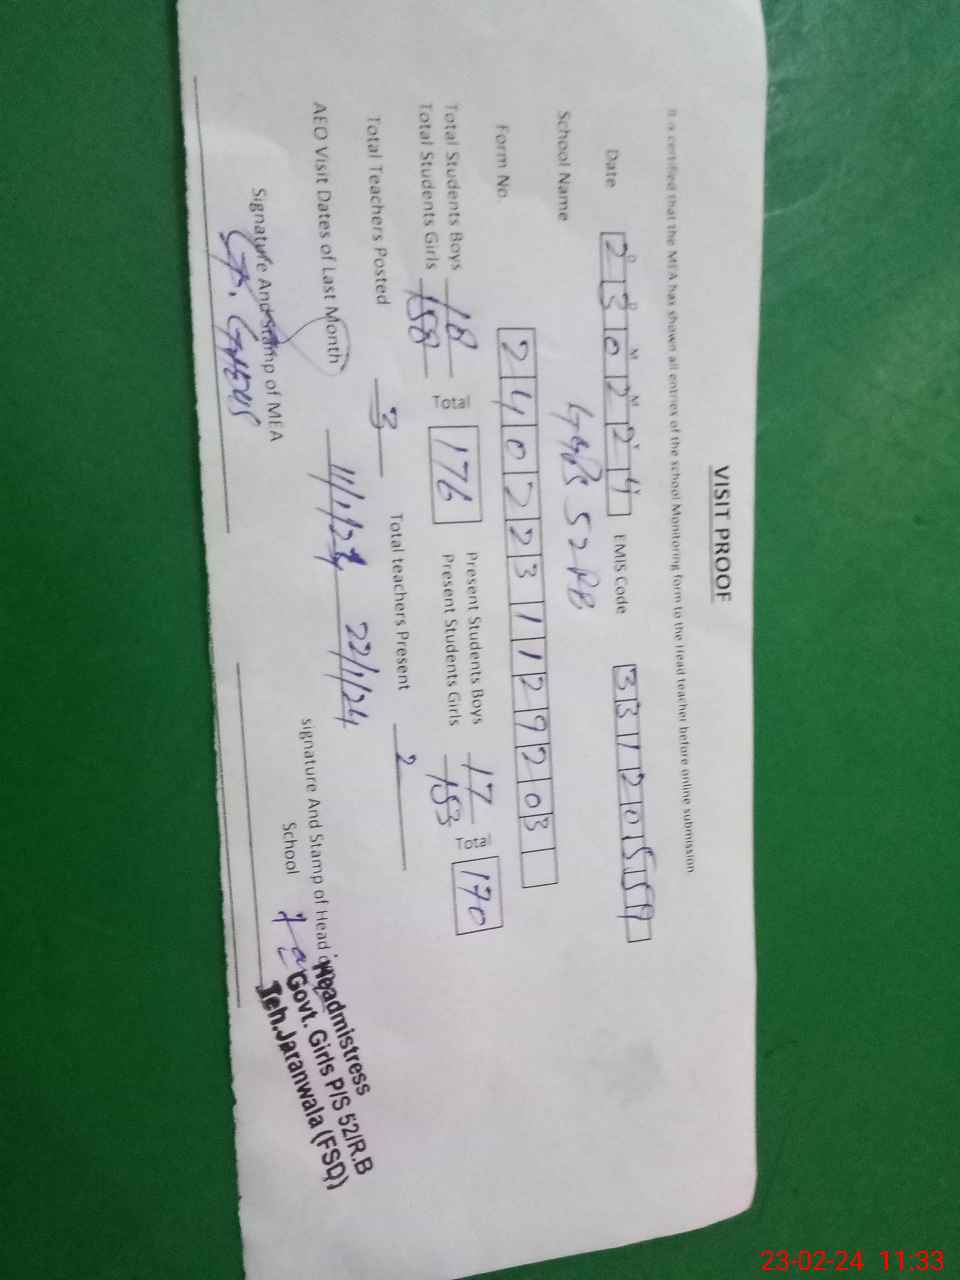 VISIT PROOF
It is certified that the MEA has shown all entries of the school Monitoring form to the Head teacher before online submission.
Date D D M M Y Y 230224 EMIS Code 33120559
School Name GGPS 52 RB
Form No. 2402231129203
Total Students Boys 18 Present Students Boys 17
Total Students Girls 158 Total 176 Present Students Girls 153 Total 170
Total Teachers Posted 3 Total teachers Present 2
AEO Visit Dates of Last Month 11/1/24 22/1/24
Signature And Stamp of MEA signature And Stamp of Head
School
Headmistress
Govt. Girls P/S 52/R.B
Teh.Jaranwala (FSD)
23-02-24 11:33